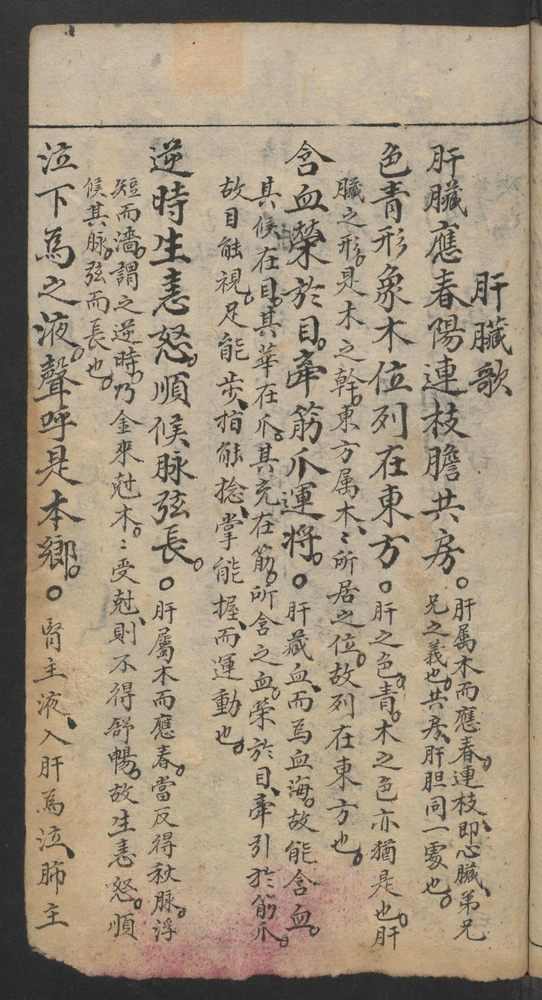 肝臟歌
肝臟應春陽連枝膽共房。肝属木而應春。連枝、即心臟、弟兄
兄之義也。共房、肝胆同一處也。
色青形象木位列在東方。肝之色青。木之色亦猶是也。肝
臟之形、是木之幹。東方属木、〻所居之位。故列在東方也。
含血榮於目。牽筋爪運將。肝藏血、而爲血海。故能含血。
其候在目。其華在爪。其充在筋。所含之血。榮於目、牽引於筋爪。
故目能視。足能步、指能捻、掌能握、而運動也。
逆時生恚怒。順候脉弦長。肝屬木而應春。當反得秋脉。浮
短而濇。謂之逆時。乃金來尅木。〻受尅、則不得舒暢。故生恚怒。順
候其脉。弦而長也。
泣下爲之液。聲呼是本鄉。腎主液、入肝爲泣、肺主